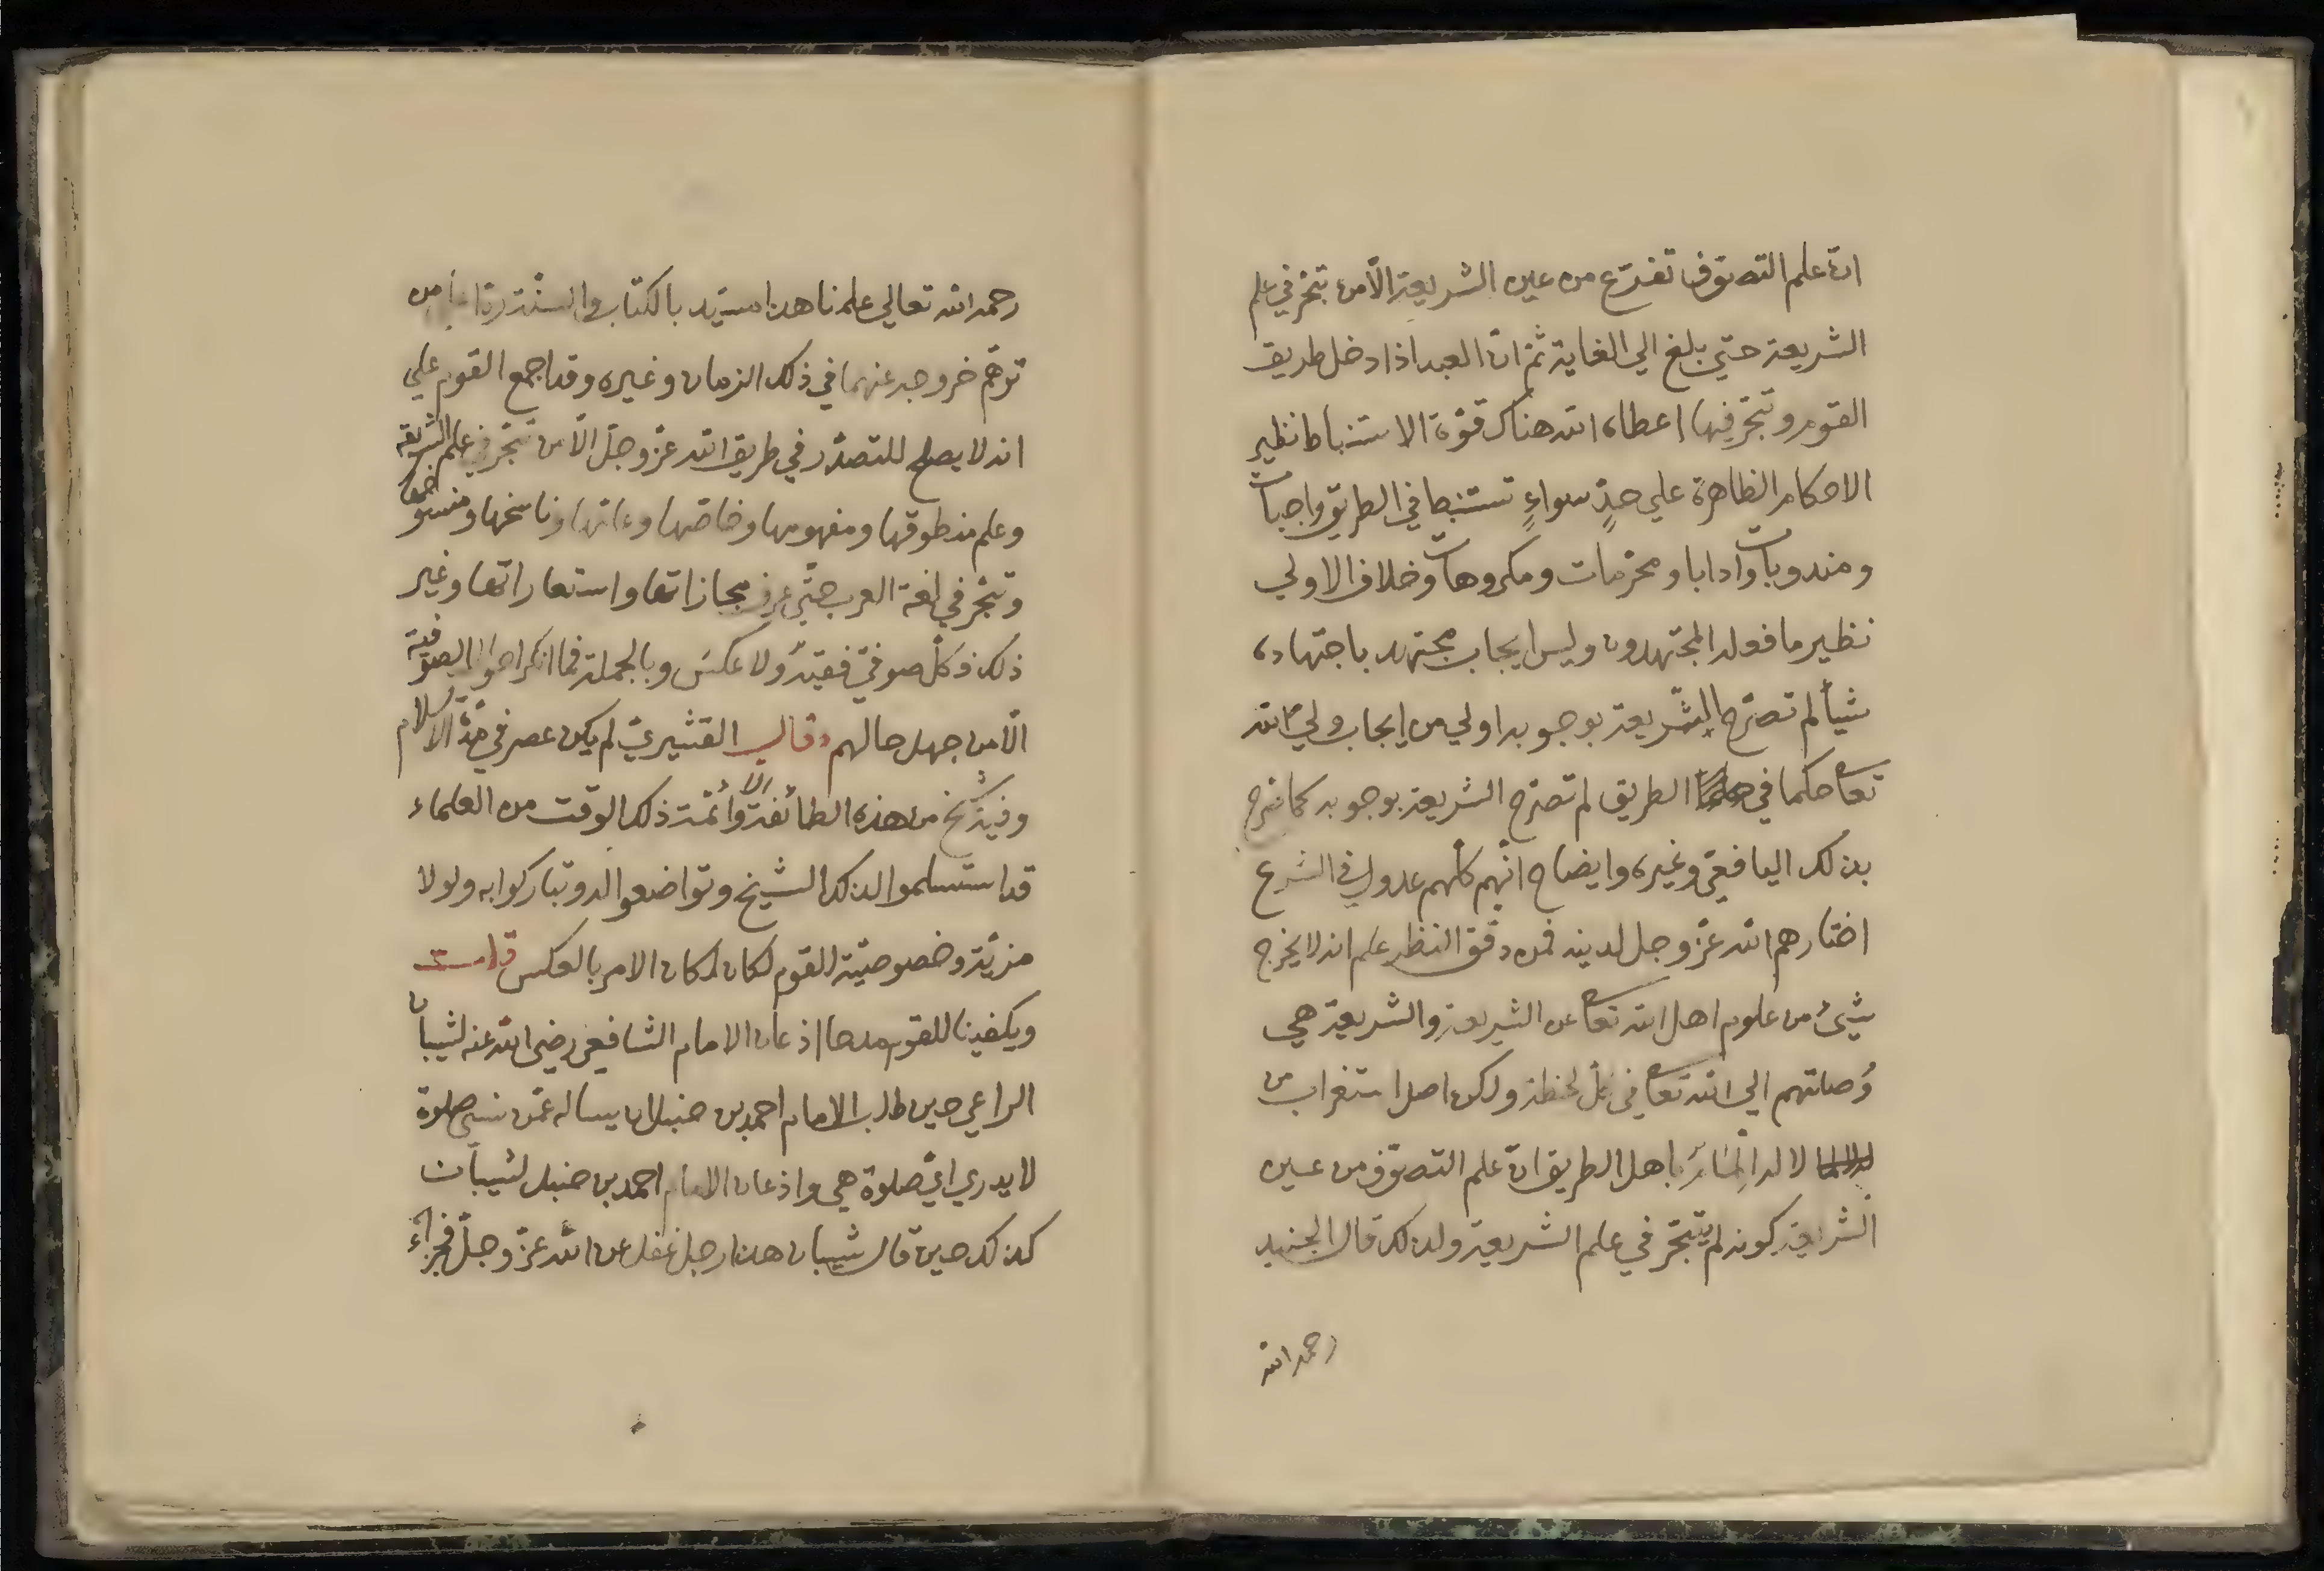 انّ علم التصوّف تفرّع من عين الشريعة الّا من تبحّر في علم
الشريعة حتّي بلغ الي الغاية ثمّ انّ العبد اذا دخل طريق
القوم و تبحّر فيها اعطاه الله هناك قوّة الاستنباط نظير
الاحكام الظاهرة علي حدٍّ سواءٍ تستنبط في الطريق واجبات
ومندوبات وادابا ومحرّمات ومكروهات وخلاف الاولي
نظير ما فعله المجتهدون وليس ايجاب مجتهد باجتهاده
شيأ لم تصرّح الشّريعة بوجوبه اولي من ايجاب وليّ الله
تعا حكما في الطريق لم تصرّح الشريعة بوجوبه كما صرّح
بذلك اليافعيّ وغيره وايضاح انّهم كلّهم عدول في الشرع
اختارهم الله عزّ وجل لدينه فمن دقّق النظر علم انه لا يخرج
شيئ من علوم اهل الله تعا عن الشريعة والشريعة هي
وُصلتهم الي الله تعا في كلّ لحظة ولكن اصل استغراب من
لا له المام باهل الطريق انّ علم التصوّف من عين
الشريعة كونه لم يتبحّر في علم الشريعة ولذلك قال الجنيد
رحمه الله
رحمه الله تعالي علمنا هذا مشيّد بالكتاب والسنّة ردّا علي من
توهّم خروجه عنهما في ذلك الزمان وغيره وقد اجمع القوم علي
انه لا يصلح للتصدّر في طريق الله عزّ وجلّ الّا من تبحّر في علم الشريعة
وعلم منطوقها ومفهومها وخاصّها وعامّها وناسخها ومنسوخها
وتبحّر في لغة العرب حتّي عرف مجازاتها واستعاراتها وغير
ذلك فكلّ صوفيّ فقيه ولا عكس وبالجملة فما انكر احوال الصوفيّة
الّا من جهل حالهم وقال القشيريّ لم يكن عصر في مدّة الاسلام
وفيه شيخ من هذه الطائفة الّا وائمّة ذلك الوقت من العلماء
قد استسلموا لذلك الشيخ وتواضعوا له وتباركوا به ولولا
مزيّة وخصوصيّة للقوم لكان لكان الامر بالعكس قلت
ويكفينا للقوم مدحا اذعان الامام الشافعي رضي الله عنه لشيبان
الراعي حين طلب الامام احمد بن حنبل ان يساله عمّن نسي صلوة
لا يدري ايّ صلوة هي واذعان الامام احمد بن حنبل لشيبان
كذلك حين قال شيبان هذا رجل غفل عن الله عزّ وجلّ فجزاءه